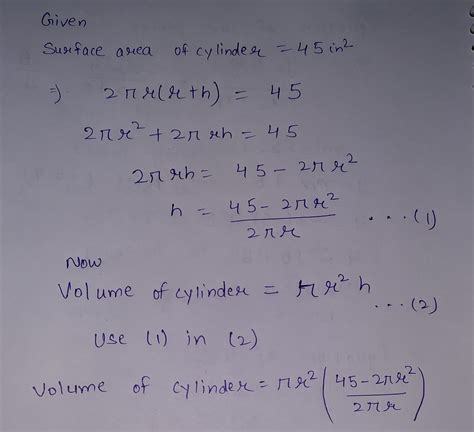 Given
Surface area of cylinder = 45 in²
⇒ 2πr(r+h) = 45
2πr² + 2πrh = 45
2πrh = 45 - 2πr²
h = (45 - 2πr²)/(2πr) ...(1)
Now
Volume of cylinder = πr²h ...(2)
Use (1) in (2)
Volume of cylinder = πr²((45-2πr²)/(2πr))